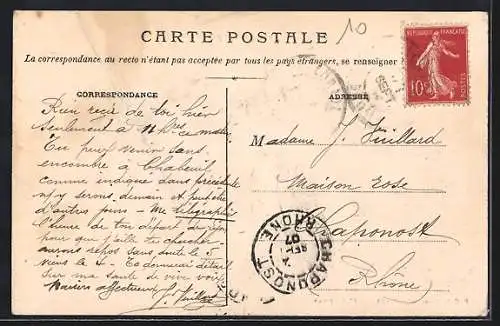 10
CARTE POSTALE
La correspondance au recto n'étant pas acceptée par tous les pays étrangers, se renseigner
REPUBLIQUE FRANÇAISE
10c
POSTES
CORRESPONDANCE
ADRESSE
Rien reçu de toi hier
seulement à 11 h ce matin
Tu peux venir sans
encombre à Chabeuil
comme indiqué dans précédente
n/y serons demain et
d'autres jours - Me télégraphier
l'heure de ton départ de
pour que j'aille te chercher
serons repos sans doute le 3
viens le 4 -
sur ma santé de vive voix
Baisers affectueux J. Juillard
Madame J. Juillard
Maison Rose
Chaponost
Rhône
CHAPONOST
SEPT
07
RHONE